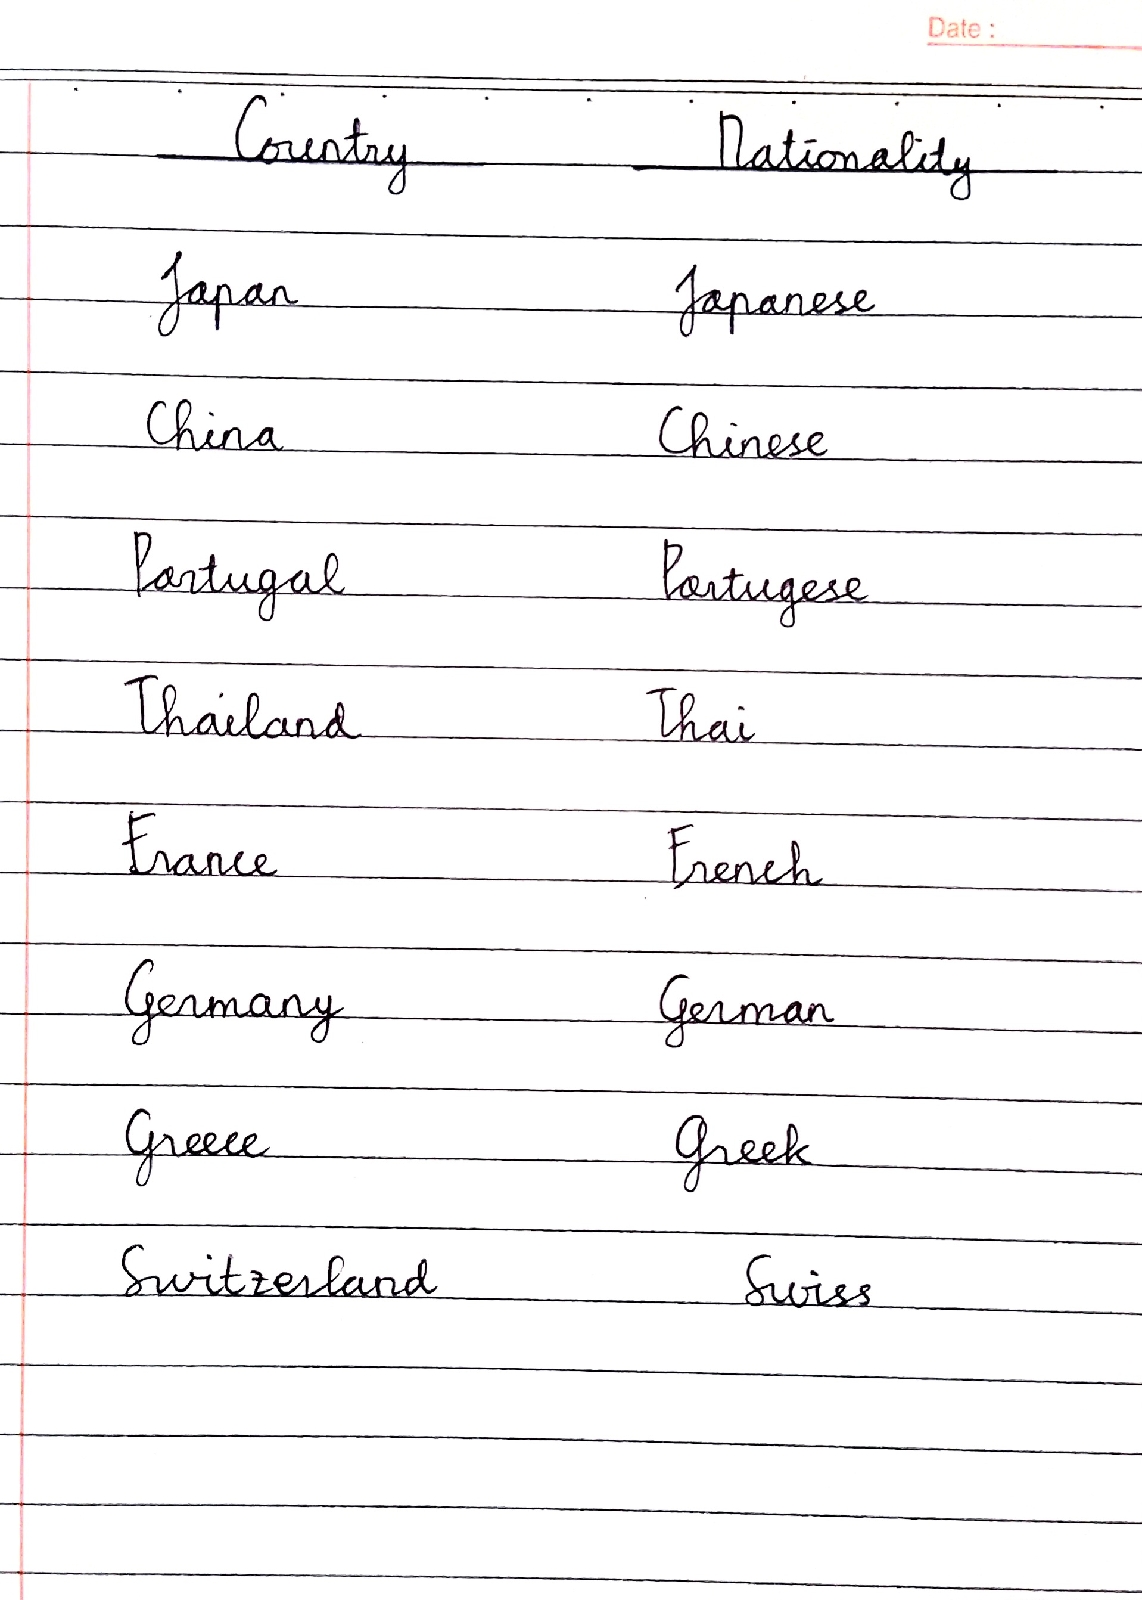 Date :
Country Nationality
Japan Japanese
China Chinese
Portugal Portugese
Thailand Thai
France French
Germany German
Greece Greek
Switzerland Swiss